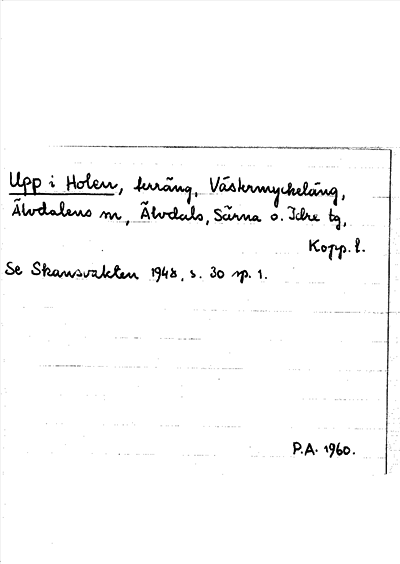 Upp i Holen, terräng, Västermyckeläng,
Älvdalens sn, Älvdals, Särna o. Idre tg,
Kopp. l.
Se Skansvakten 1948, s. 30 sp. 1.
P.A. 1960.